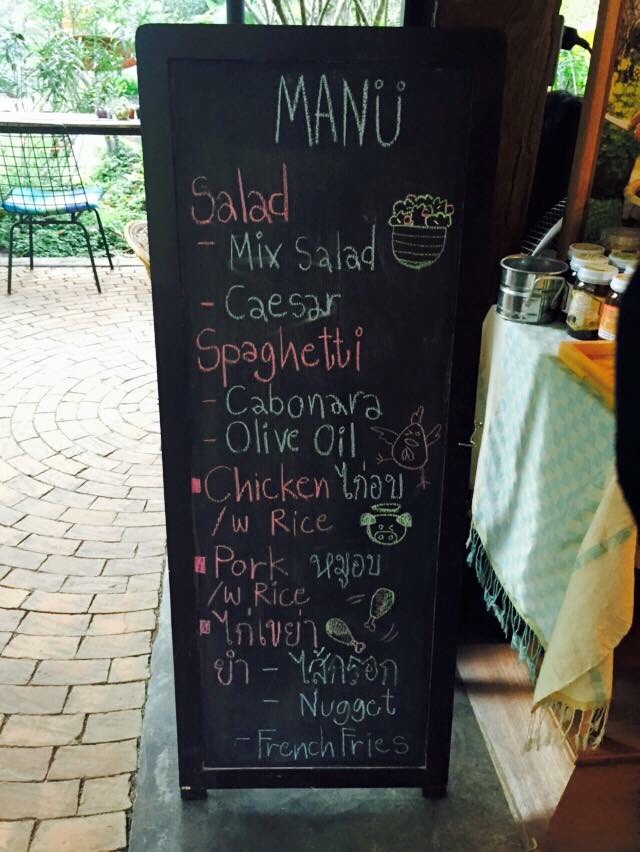 MANÜ
Salad
- Mix Salad
- Caesar
Spaghetti
- Cabonara
- Olive Oil
Chicken ไก่อบ
/w Rice
Pork หมูอบ
/w Rice
ไก่เขย่า
ยำ - ไส้กรอก
- Nugget
- French Fries